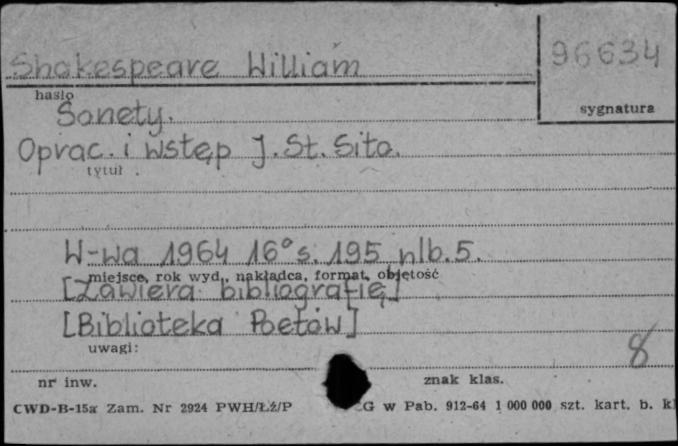 Shakespeare William
96634
hasło
sygnatura
Sonety.
Oprac. i wstęp J. St. Sito.
tytuł
W-wa 1964 16° s. 195 nlb. 5.
miejsce, rok wyd., nakładca, format, objętość
[Zawiera bibliografię]
[Biblioteka Poetów]
uwagi:
8
nr inw.
znak klas.
CWD-B-15a Zam. Nr 2924 PWH/Łź/P G w Pab. 912-64 1 000 000 szt. kart. b. kl